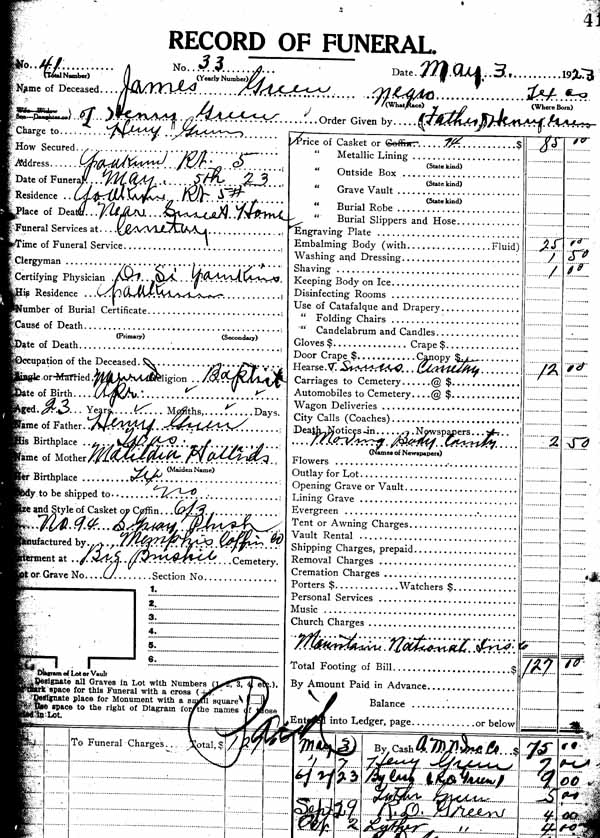 41
RECORD OF FUNERAL.
No. 41 No. 33 Date May 3 1923
(Total Number) (Yearly Number)
Name of Deceased James Green Negro Texas
(What Race) (Where Born)
of Henry Green Order Given by (Father) Henry Green
Charge to Henry Green
How Secured
Address Yoakum Rt. 5
Date of Funeral May 5th 23
Residence Yoakum Rt 5th
Place of Death Near Sweet Home
Funeral Services at Cemetery
Time of Funeral Service
Clergyman
Certifying Physician Dr.
His Residence Yoakum
Number of Burial Certificate
Cause of Death
(Primary) (Secondary)
Date of Death
Occupation of the Deceased
Single or Married Married Religion Baptist
Date of Birth Apr.
Aged 23 Years Months Days.
Name of Father Henry Green
His Birthplace Texas
Name of Mother Matildia
(Maiden Name)
Her Birthplace Tex
Body to be shipped to no
Size and Style of Casket or Coffin 6/3
No. 94 S Gray Plush
Manufactured by Memphis Coffin Co
Interment at Big Brushie Cemetery.
Lot or Grave No. Section No.
1.
2.
3.
4.
5.
6.
Diagram of Lot or Vault
Designate all Graves in Lot with Numbers (1, 2, 3, 4, etc.),
mark space for this Funeral with a cross (+)
Designate place for Monument with a small square
Use space to the right of Diagram for the names of those
in Lot.
To Funeral Charges Total, $
Price of Casket or Coffin 94 $ 85 00
" Metallic Lining
(State kind)
" Outside Box
(State kind)
" Grave Vault
(State kind)
" Burial Robe
(State kind)
" Burial Slippers and Hose
Engraving Plate
Embalming Body (with Fluid) 25 00
Washing and Dressing 1 50
Shaving 1 00
Keeping Body on Ice
Disinfecting Rooms
Use of Catafalque and Drapery
" Folding Chairs
" Candelabrum and Candles
Gloves $ Crape $
Door Crape $ Canopy $
Hearse Cemetery 12 00
Carriages to Cemetery @ $
Automobiles to Cemetery @ $
Wagon Deliveries
City Calls (Coaches)
Death Notices in Newspapers
Moving Body County 2 50
(Names of Newspapers)
Flowers
Outlay for Lot
Opening Grave or Vault
Lining Grave
Evergreen
Tent or Awning Charges
Vault Rental
Shipping Charges, prepaid
Removal Charges
Cremation Charges
Porters $ Watchers $
Personal Services
Music
Church Charges
Mountain National Ins. Co
Total Footing of Bill $ 127 00
By Amount Paid in Advance
Balance
Entered into Ledger, page or below
Paid
May 3 By Cash Co. $ 75 00
" 7 Henry Green 7 00
6/2/23 By Green 9 00
Luther Green 5 00
Sept 29 Green 4 00
Oct. 2 Luther " 4 00